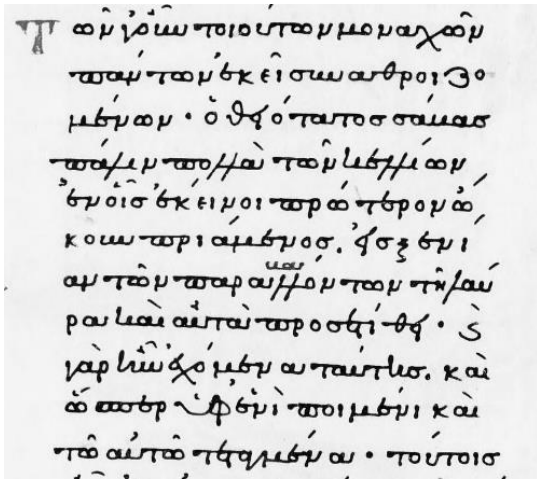 Τῶν γοῦν τοιούτων μοναχῶν
πάντων ἐκεῖ συναθροιζο
μένων· ὁ θειότατος σάβας
πάλιν πολλὰ τῶν κελλίων
ἐν οἷς ἐκεῖνοι πρώτερον ὤ
κουν πριάμενος, εἰς ξενί
αν τῶν τῆ λαύ
ρα καὶ αὐτὰ προστίθει· ἃ
γὰρ ἦν ἐχόμενα ταύτης, καὶ
ὥσπερ ὑφ' ἑνὶ ποιμένι καὶ
τῶ αὐτῶ τεταγμένα· τούτοις